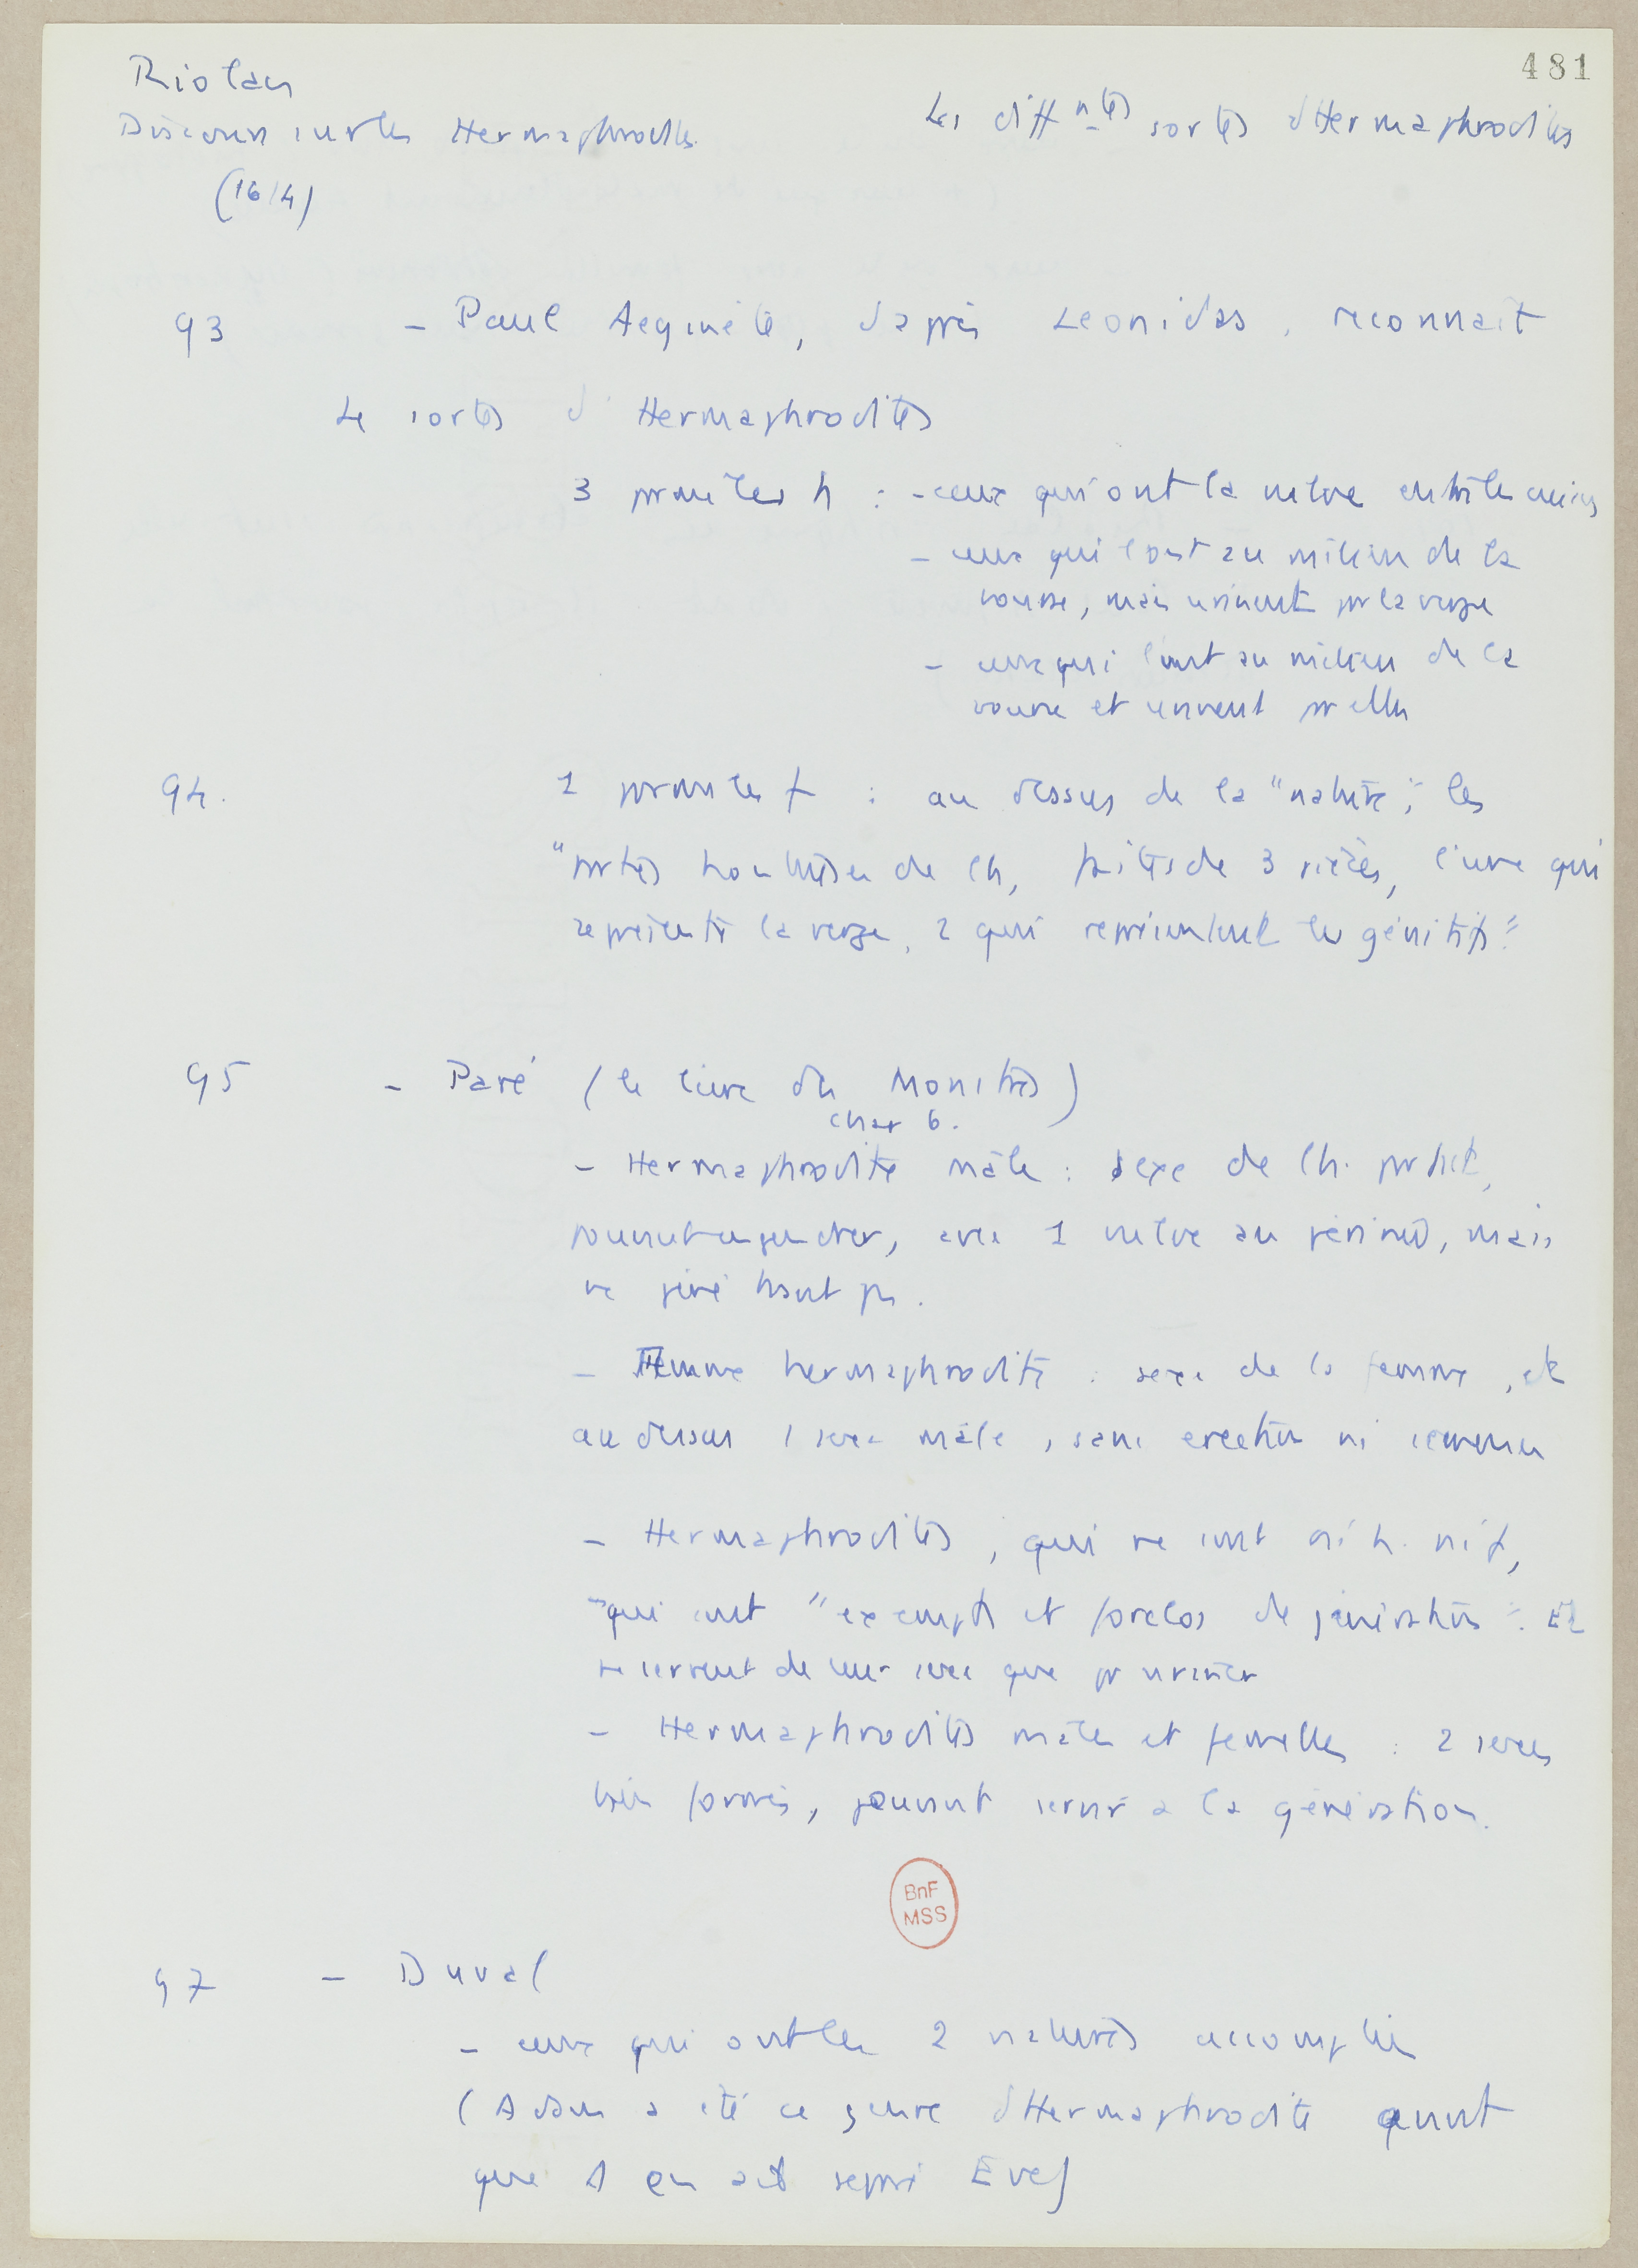 481
Riolan
Discours sur les Hermaphrodites.
(1614)
Les diff ntes sortes d'Hermaphrodites
93 – Paul Aeginète, d'après Leonidas, reconnaît
4 sortes d'Hermaphrodites
3 pour les h : - ceux qui ont la vulve entre les cuisses
– ceux qui l'ont au milieu de la
bourse, mais urinent pr la verge
– ceux qui l'ont au milieu de la
bourse et urinent pr elle
94. 1 pour les f : au dessus de la "nature", les
"parties honteuses de l'h, faites de 3 pièces, l'une qui
représente la verge, 2 qui représentent les génitifs".
95 – Paré (le livre des Monstres)
chap 6.
– Hermaphrodite mâle : sexe de l'h. parfait,
pouvant engendrer, avec 1 vulve au périnée, mais
ne pénétrant pas.
– Femme hermaphrodite : sexe de la femme, et
au dessus 1 sexe mâle, sans erection ni semence
– Hermaphrodites, qui ne sont ni h. ni f,
qui sont "exempts et forclos de génération". Et
ne servent de leur sexe que pr uriner
– Hermaphrodites mâles et femelles : 2 sexes
bien formés, pouvant servir a la génération.
BnF
MSS
97 – Duval
– ceux qui ont les 2 natures accomplies
(Adam a été ce genre d'Hermaphrodite avant
que en ait séparé Eve)